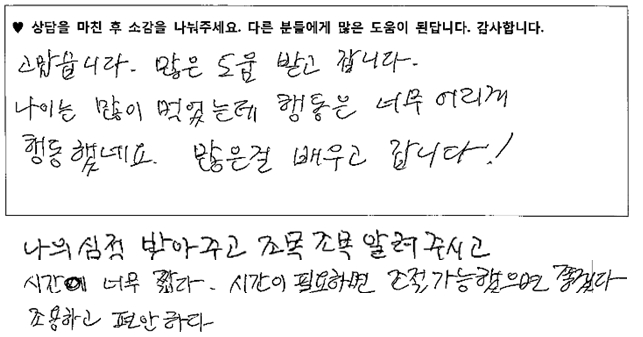 ♥ 상담을 마친 후 소감을 나눠주세요. 다른 분들에게 많은 도움이 된답니다. 감사합니다.
고맙습니다. 많은 도움 받고 갑니다.
나이는 많이 먹었는데 행동은 너무 어리게
행동했네요. 많은걸 배우고 갑니다!
나의 심적 받아주고 조목 조목 알려주시고
시간이 너무 짧다. 시간이 필요하면 조절가능했으면 좋겠다
조용하고 편안하다